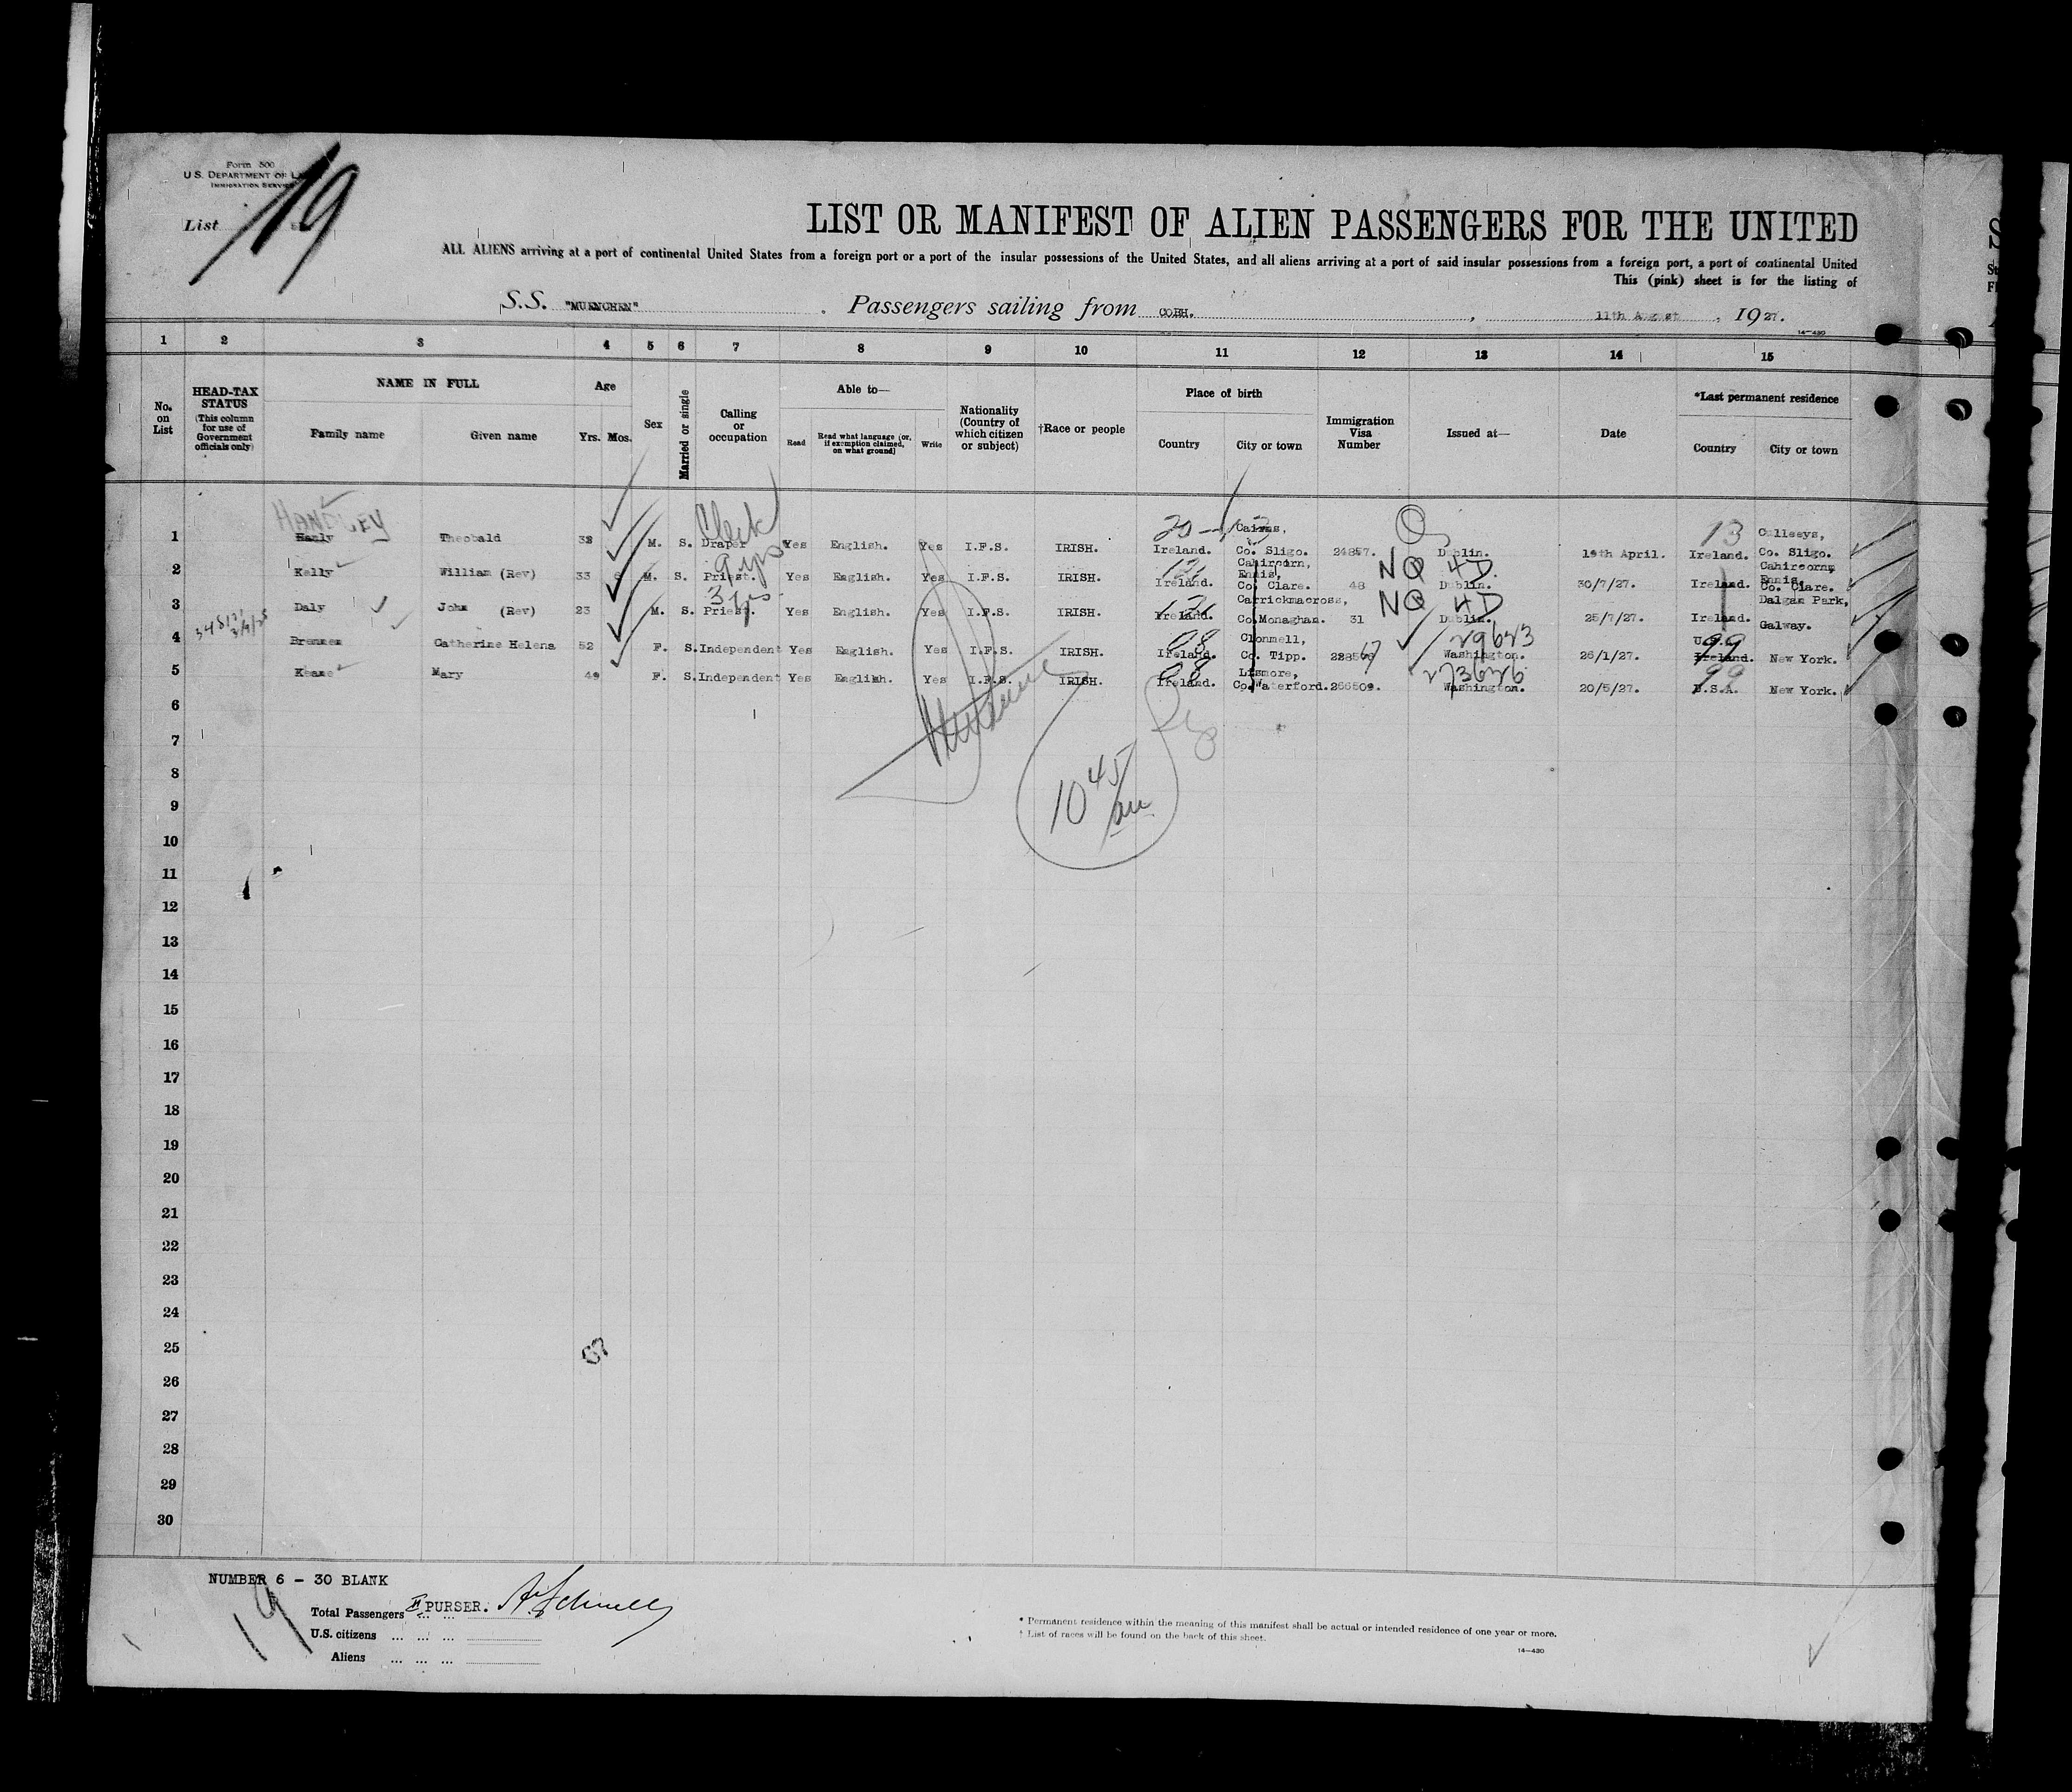 Form 500
U.S. DEPARTMENT OF
IMMIGRATION SERVICE
List 19
LIST OR MANIFEST OF ALIEN PASSENGERS FOR THE UNITED
ALL ALIENS arriving at a port of continental United States from a foreign port or a port of the insular possessions of the United States, and all aliens arriving at a port of said insular possessions from a foreign port, a port of continental United
This (pink) sheet is for the listing of
S.S. "MUENCHEN" Passengers sailing from COBH. , 11th August , 1927.
14—430
1 2 3 4 5 6 7 8 9 10 11 12 13 14 15
No. on List
HEAD-TAX STATUS (This column for use of Government officials only)
NAME IN FULL
Family name Given name
Age
Yrs. Mos.
Sex
Married or single
Calling or occupation
Able to—
Read Read what language (or, if exemption claimed, on what ground) Write
Nationality (Country of which citizen or subject)
†Race or people
Place of birth
Country City or town
Immigration Visa Number
Issued at—
Date
*Last permanent residence
Country City or town
HANDLEY Clerk 20 Q 13
1 Hanly Theobald 38 M. S. Draper Yes English. Yes I.F.S. IRISH. Ireland. Cairns, Co. Sligo. 24857. Dublin. 19th April. Ireland. Culleeys, Co. Sligo.
9 yrs NQ 4D
2 Kelly William (Rev) 33 M. S. Priest. Yes English. Yes I.F.S. IRISH. Ireland. Cahircorn, Ennis, Co. Clare. 48 Dublin. 30/7/27. Ireland. Cahircorn, Ennis, Co. Clare.
3 yrs NQ 4D
3 Daly John (Rev) 23 M. S. Priest. Yes English. Yes I.F.S. IRISH. Ireland. Carrickmacross, Co. Monaghan. 31 Dublin. 25/7/27. Ireland. Dalgan Park, Galway.
08 67 29623 99
4 Brennen Catherine Helena 52 F. S. Independent Yes English. Yes I.F.S. IRISH. Ireland. Clonmell, Co. Tipp. Washington. 26/1/27. U.S.A. Ireland. New York.
08 273626 99
5 Keane Mary 49 F. S. Independent Yes English. Yes I.F.S. IRISH. Ireland. Lismore, Co. Waterford. 256509. Washington. 20/5/27. U.S.A. New York.
6
7
8
10 45 am
9
10
11
12
13
14
15
16
17
18
19
20
21
22
23
24
25
26
27
28
29
30
NUMBER 6 - 30 BLANK
19
Total Passengers ... ... PURSER.
U.S. citizens ... ... ...
Aliens ... ... ...
* Permanent residence within the meaning of this manifest shall be actual or intended residence of one year or more.
† List of races will be found on the back of this sheet.
14—430